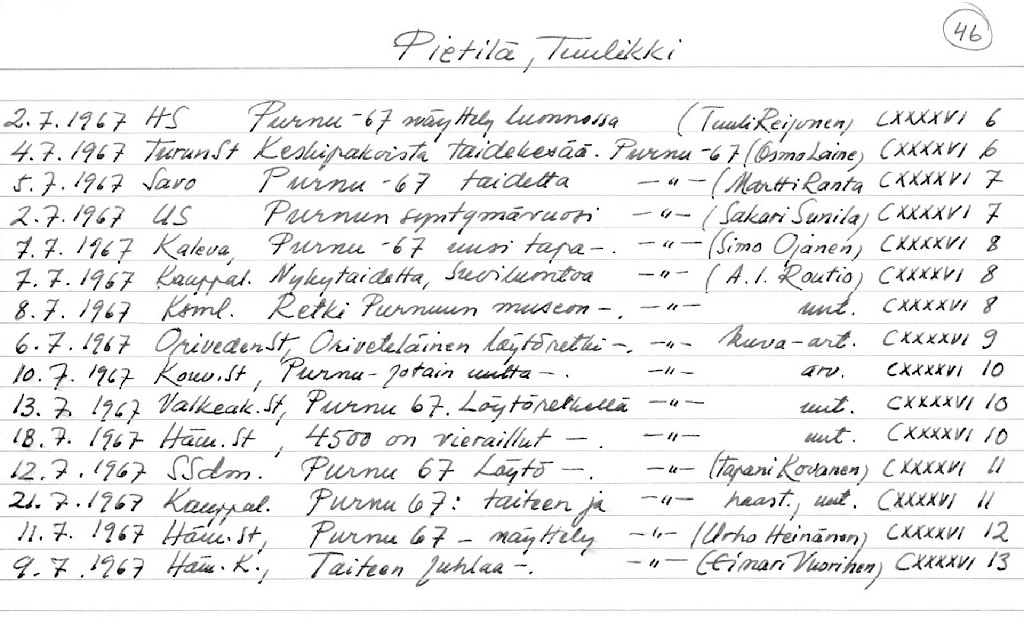 46
Pietilä, Tuulikki
2.7.1967 HS Purnu-67 näyttely luonnossa (Tuuli Reijonen) CXXXXVI 6
4.7.1967 TurunSt Keskipakoista taidekesää. Purnu-67 (Osmo Laine) CXXXXVI 6
5.7.1967 Savo Purnu-67 taidetta —"— (Martti Ranta CXXXXVI 7
2.7.1967 US Purnun syntymävuosi —"— (Sakari Sunila) CXXXXVI 7
7.7.1967 Kaleva, Purnu-67 uusi tapa-. —"— (Simo Ojanen) CXXXXVI 8
7.7.1967 Kauppal. Nykytaidetta, suviluontoa —"— (A.I. Routio) CXXXXVI 8
8.7.1967 Ksml. Retki Purnuun museon-. —"— uut. CXXXXVI 8
6.7.1967 OrivedenSt, Oriveteläinen löytöretki-. —"— kuva-art. CXXXXVI 9
10.7.1967 Kouv.St, Purnu-jotain uutta-. —"— arv. CXXXXVI 10
13.7.1967 Valkeak.St, Purnu 67. Löytöretkellä —"— uut. CXXXXVI 10
18.7.1967 Häm.St, 4500 on vieraillut —. —"— uut. CXXXXVI 10
12.7.1967 SSdm. Purnu 67 Löytö —. —"— (Tapani Kovanen) CXXXXVI 11
21.7.1967 Kauppal. Purnu 67: taiteen ja —"— haast., uut. CXXXXVI 11
11.7.1967 Häm.St, Purnu 67 - näyttely —"— (Urho Heinänen) CXXXXVI 12
9.7.1967 Häm.K., Taiteen juhlaa-. —"— (Einari Vuorinen) CXXXXVI 13